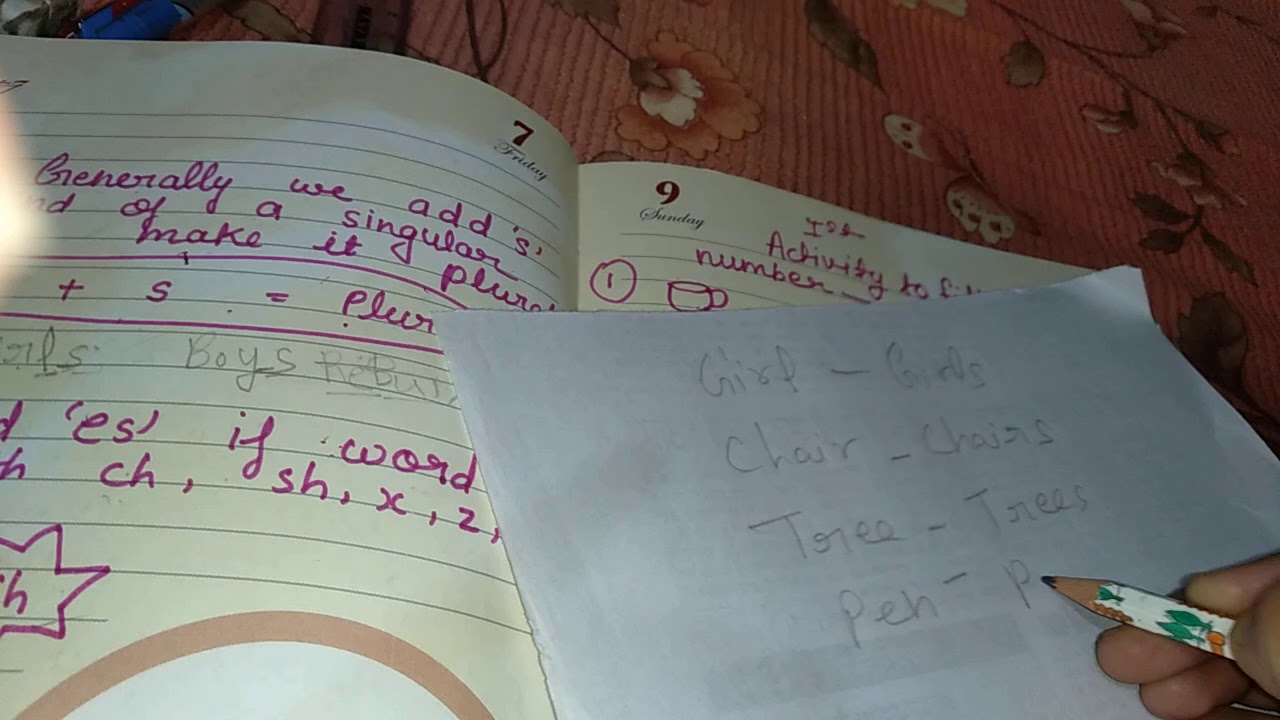 7
Friday
Generally we add 's'
nd of a singular
make it plural
+ s = Plur
irls Boys
d 'es' if word
h ch, sh, x, z,
h
9
Sunday
Activity to
number
1
Girl - Girls
Chair - Chairs
Tree - Trees
Pen - P